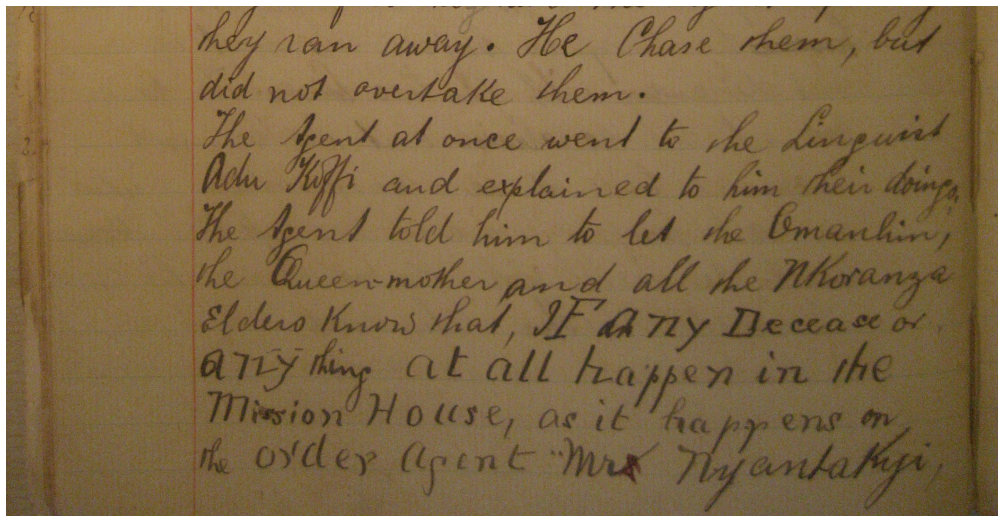 they ran away. He Chase them, but
did not overtake them.
The Agent at once went to the Linguist
Adu Koffi and explained to him their doings,
The Agent told him to let the Omanhin,
the Queen-mother, and all the NKoranza
Elders Know that, IF any Decease or
any thing at all happen in the
Mission House, as it happens on
the order Agent "Mrs Nyantakyi,